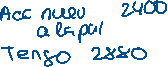 Acc nueu 2400
a la pal
Tengo 2880